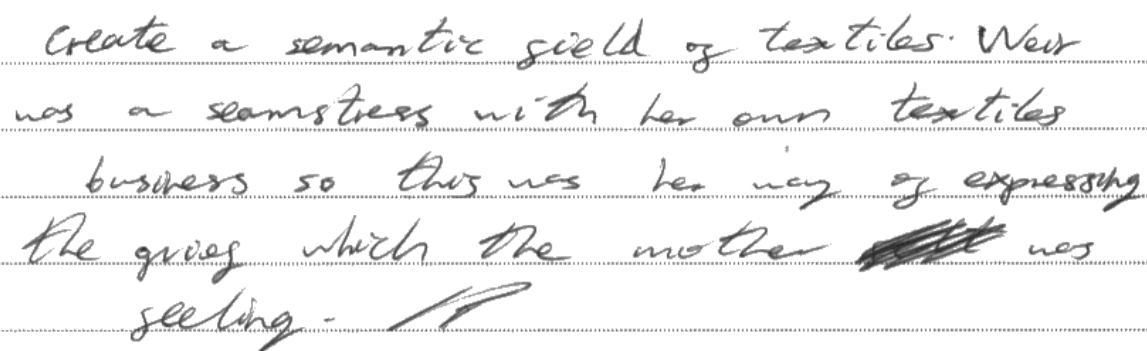 create a semantic field of textiles. Weir
was a seamstress with her own textiles
business so this was her way of expressing
the grief which the mother was
feeling.